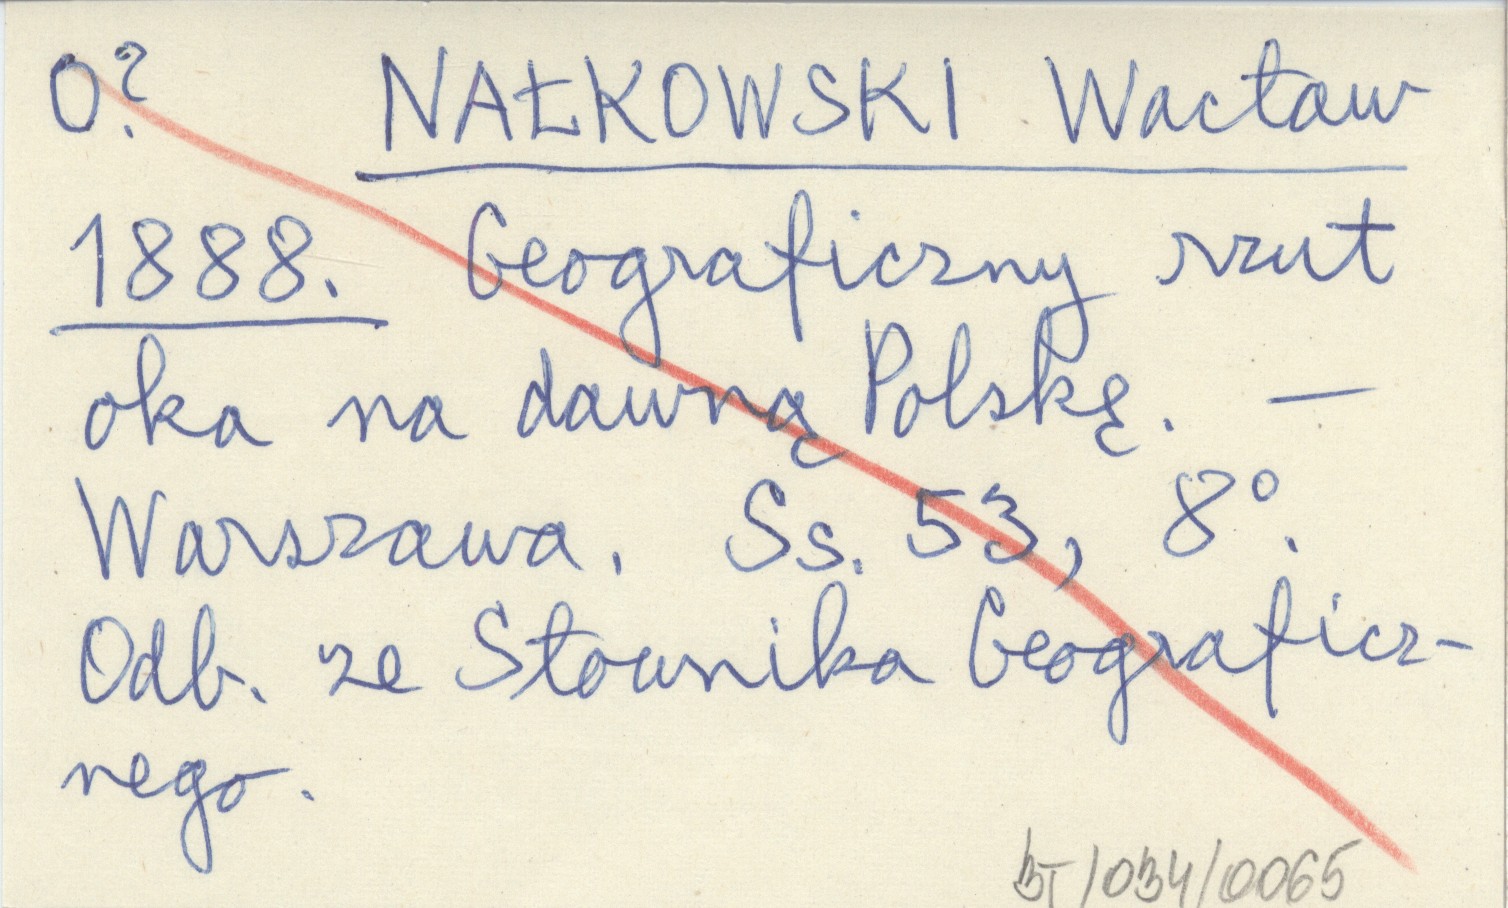 O? NAŁKOWSKI Wacław
1888. Geograficzny rzut
oka na dawną Polskę. —
Warszawa. Ss. 53, 8°.
Odb. ze Słownika Geograficz-
nego.
BT/034/0065